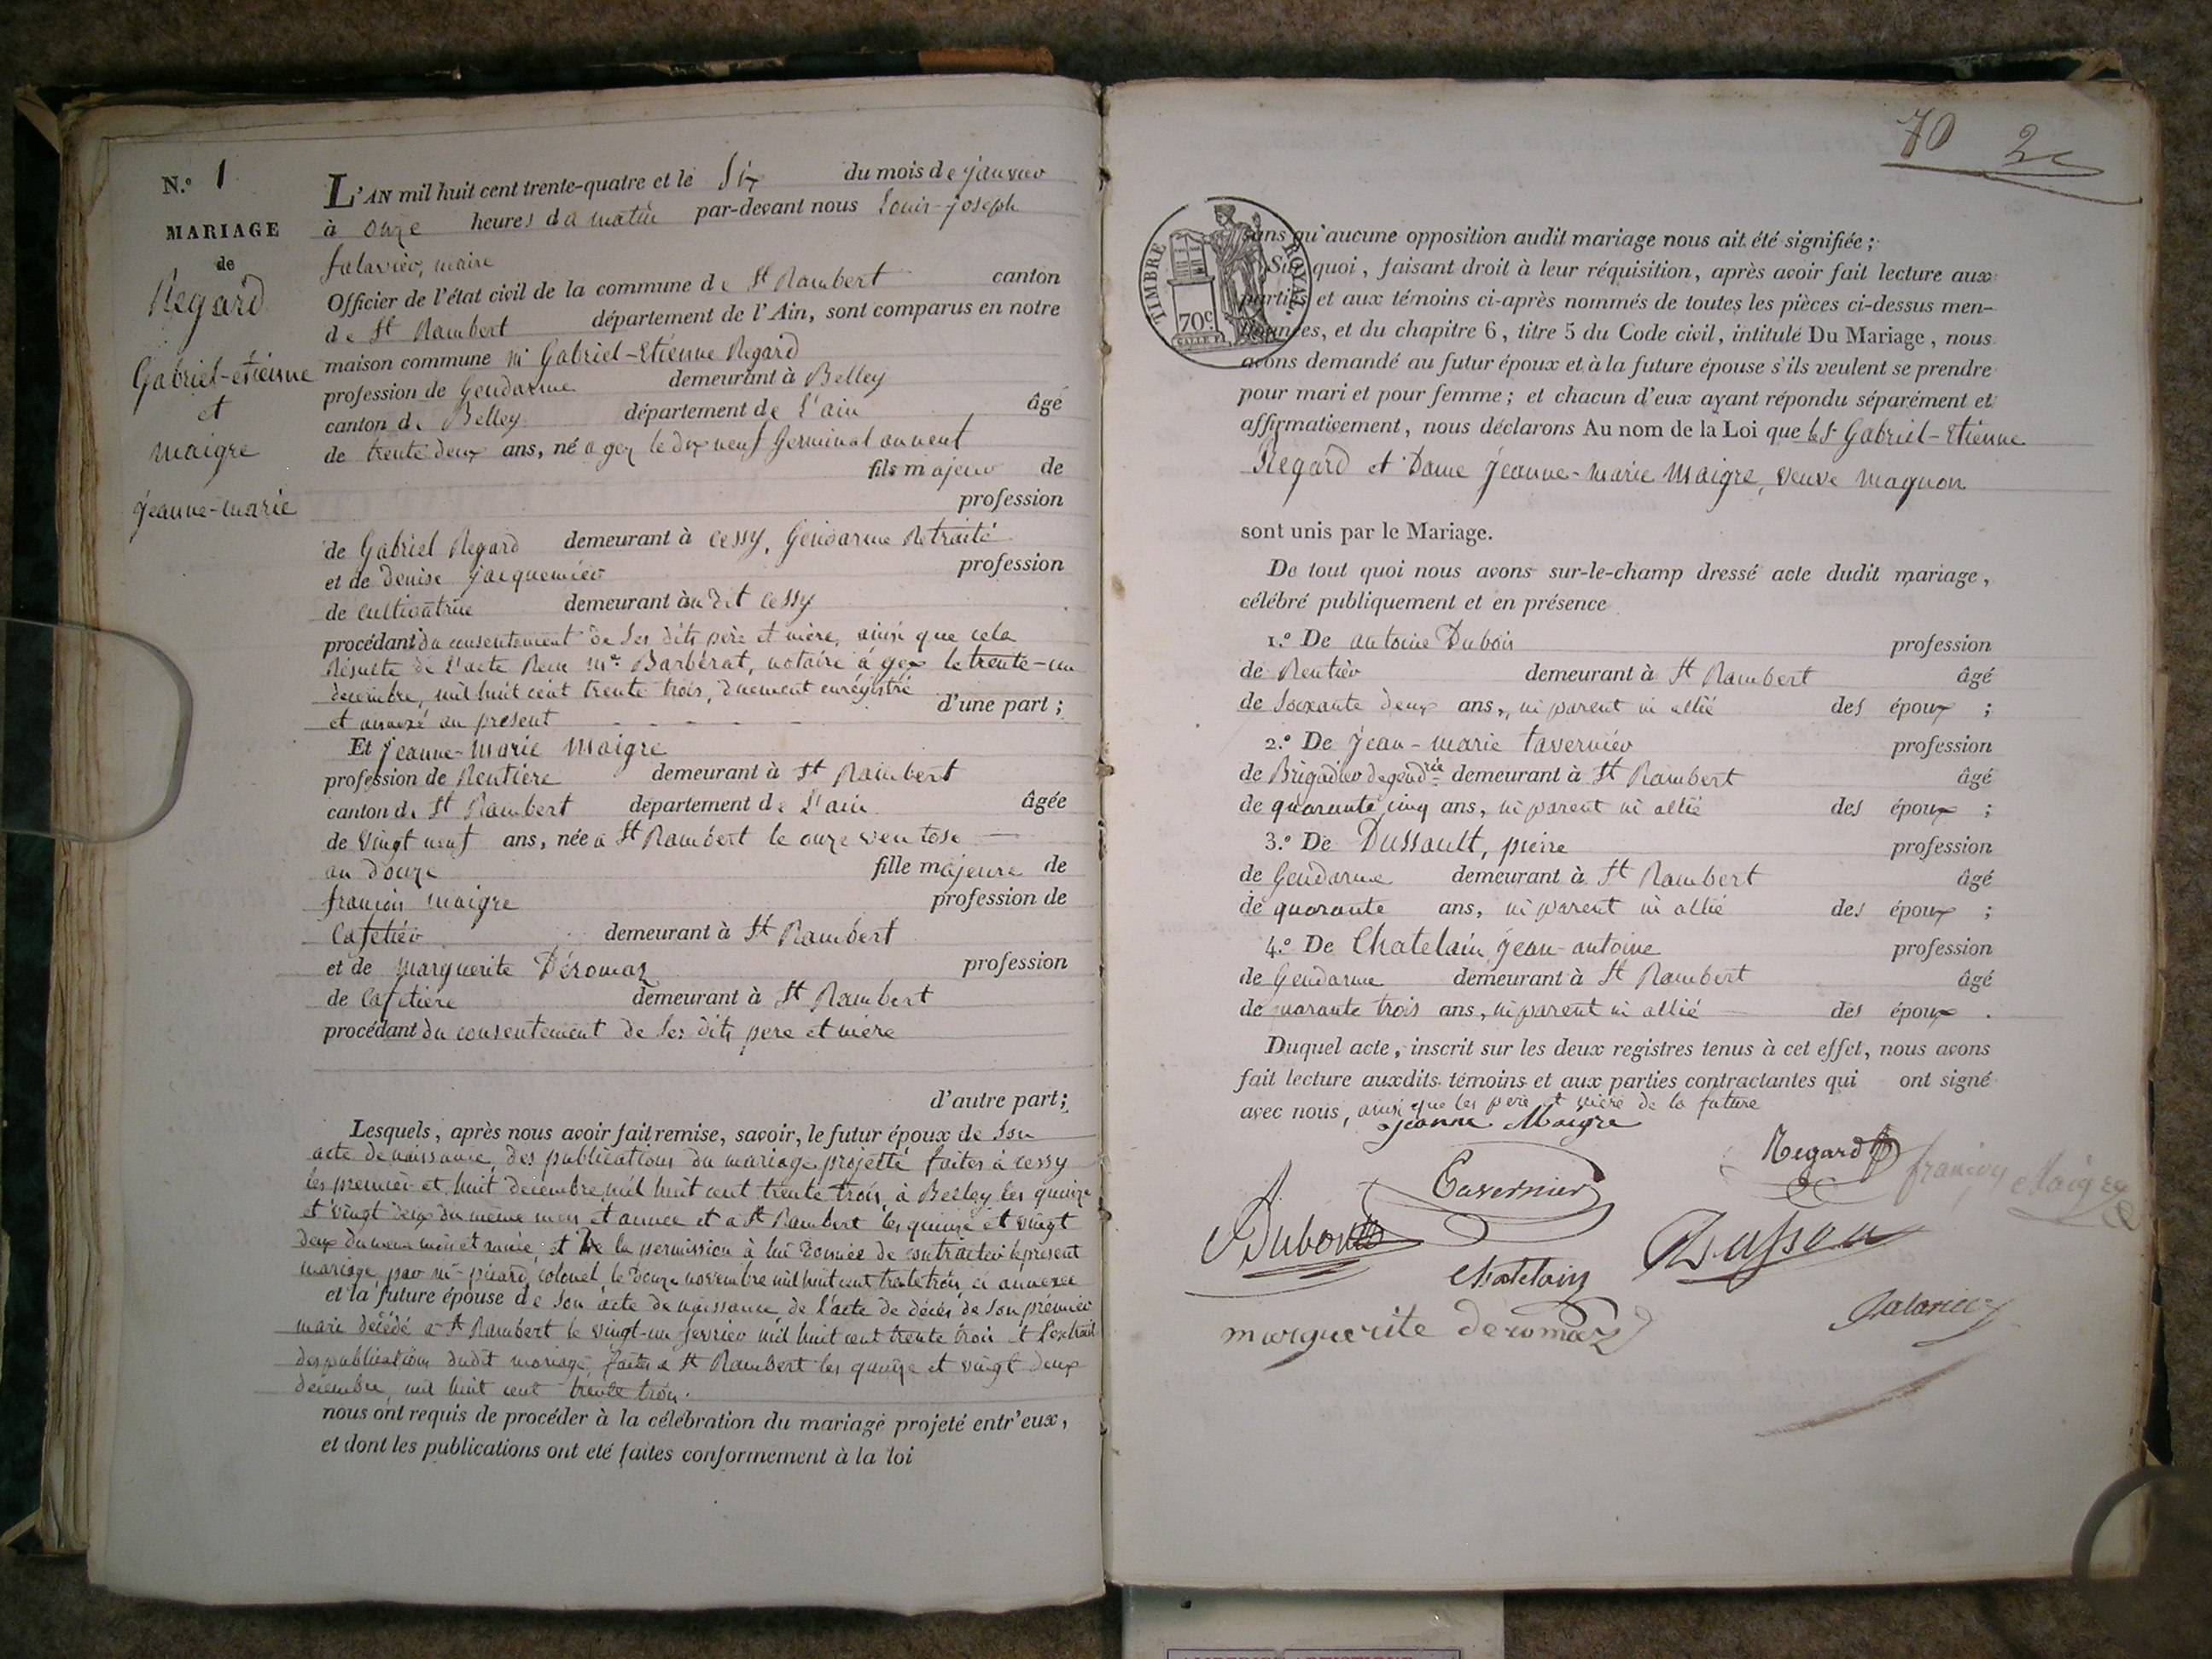 N.° 1
MARIAGE
de
Regard
Gabriel-etienne
et
maigre
jeanne-marie
L'AN mil huit cent trente-quatre et le Six du mois de janvier
à onze heures du matin par-devant nous Louis-joseph
falavier, maire
Officier de l'état civil de la commune de St Rambert canton
de St Rambert département de l'Ain, sont comparus en notre
maison commune mr Gabriel-Etienne Regard
profession de Gendarme demeurant à Belley
canton de Belley département de L'ain âgé
de trente deux ans, né a gex le dix neuf Germinal an neuf
fils majeur de
profession
de Gabriel Regard demeurant à Cessy, Gendarme Retraité
et de Denise jacquemier profession
de cultivatrice demeurant au dit Cessy
procédant du consentement de Ses dits père et mère, ainsi que cela
Résulte de l'acte Recu Me Barbérat, notaire à gex le trente-un
decembre, mil huit cent trente trois, duement enrégistré
et annexé au present d'une part ;
Et jeanne-marie maigre
profession de Rentiere demeurant à St Rambert
canton de St Rambert département de L'ain âgée
de vingt neuf ans, née a St Rambert le onze ventose
an douze fille majeure de
francois maigre profession de
Cafetier demeurant à St Rambert
et de marguerite Déromaz profession
de Cafetiere demeurant à St Rambert
procédant du consentement de Ses dits pere et mère
d'autre part ;
Lesquels, après nous avoir fait remise, savoir, le futur époux de Son
acte de naissance, des publications du mariage projetté faites à cessy
les premier et huit decembre mil huit cent trente trois, à Belley les quinze
et vingt deux du même mois et annee et a St Rambert les quinze et vingt
deux du meme mois et année, et de la permission à lui donnée de contracter le present
mariage par mr picard, colonel, le douze novembre mil huit cent trente trois, ci annexée
et la future épouse de Son acte de naissance de l'acte de décès de Son prémier
mari décédé a St Rambert le vingt-un fevrier mil huit cent trente trois et l'extrait
des publications dudit mariage, faites a St Rambert les quinze et vingt deux
decembre mil huit cent trente trois.
nous ont requis de procéder à la célébration du mariage projeté entr'eux,
et dont les publications ont eté faites conformement à la loi
70 2e
TIMBRE ROYAL
70c
sans qu'aucune opposition audit mariage nous ait été signifiée ;
Sur quoi, faisant droit à leur réquisition, après avoir fait lecture aux
parties et aux témoins ci-après nommés de toutes les pièces ci-dessus men-
tionnées, et du chapitre 6, titre 5 du Code civil, intitulé Du Mariage, nous
avons demandé au futur époux et à la future épouse s'ils veulent se prendre
pour mari et pour femme ; et chacun d'eux ayant répondu séparément et
affirmativement, nous déclarons Au nom de la Loi que le Sr Gabriel-Etienne
Regard et Dame jeanne-marie maigre, veuve magnon
sont unis par le Mariage.
De tout quoi nous avons sur-le-champ dressé acte dudit mariage,
célébré publiquement et en présence
1.° De antoine Dubois profession
de Rentier demeurant à St Rambert âgé
de soixante deux ans, ni parent ni allié des époux ;
2.° De jean-marie tavernier profession
de Brigadier de gendrie demeurant à St Rambert âgé
de quarante cinq ans, ni parent ni allié des époux ;
3.° De Dussault, pierre profession
de Gendarme demeurant à St Rambert âgé
de quarante ans, ni parent ni allié des époux ;
4.° De Chatelain jean-antoine profession
de Gendarme demeurant à St Rambert âgé
de quarante trois ans, ni parent ni allié des époux .
Duquel acte, inscrit sur les deux registres tenus à cet effet, nous avons
fait lecture auxdits témoins et aux parties contractantes qui ont signé
avec nous, ainsi que les pere et mère de la future
Jeanne Maigre
Regard
francois Maigre
Tavernier
Dubois
Dussau
Chatelain
falavier
marguerite deromaz